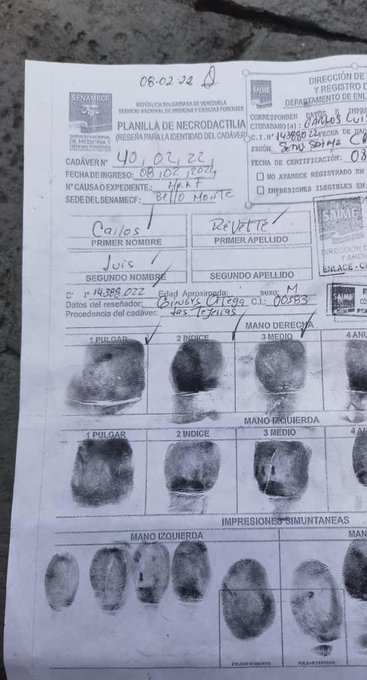 08-02-22
SENAMECF
SERVICIO NACIONAL
DE MEDICINA Y
CIENCIAS FORENSES
REPÚBLICA BOLIVARIANA DE VENEZUELA
SERVICIO NACIONAL DE MEDICINA Y CIENCIAS FORENSES
PLANILLA DE NECRODACTILIA
(RESEÑA PARA LA IDENTIDAD DEL CADÁVER)
CADÁVER Nº 40, 02, 22,
FECHA DE INGRESO: 08, 02, 2022
Nº CAUSA O EXPEDIENTE:
SEDE DEL SENAMECF: Bello Monte
Carlos
PRIMER NOMBRE
Revette
PRIMER APELLIDO
Luis
SEGUNDO NOMBRE
SEGUNDO APELLIDO
14.388.022 Edad Aproximada: sexo: M
Datos del reseñador: Ortega C.I.: 00583
Procedencia del cadáver: Las Tejerías
SAIME
DIRECCIÓN DE
Y REGISTRO D
DEPARTAMENTO DE ENL
CORRESPONDEN
CIUDADANO(a): Carlos Luis
14388022 FECHA DE NA
SEGÚN
FECHA DE CERTIFICACIÓN: 08
NO APARECE REGISTRADO EN
IMPRESIONES ILEGIBLES EN
SAIME
DIRECCIÓN
Y ARCHI
ENLACE - C
SAIME
MANO DERECHA
1 PULGAR
2 INDICE
3 MEDIO
4 ANU
MANO IZQUIERDA
1 PULGAR
2 INDICE
3 MEDIO
4 AN
IMPRESIONES SIMUNTANEAS
MANO IZQUIERDA
MAN